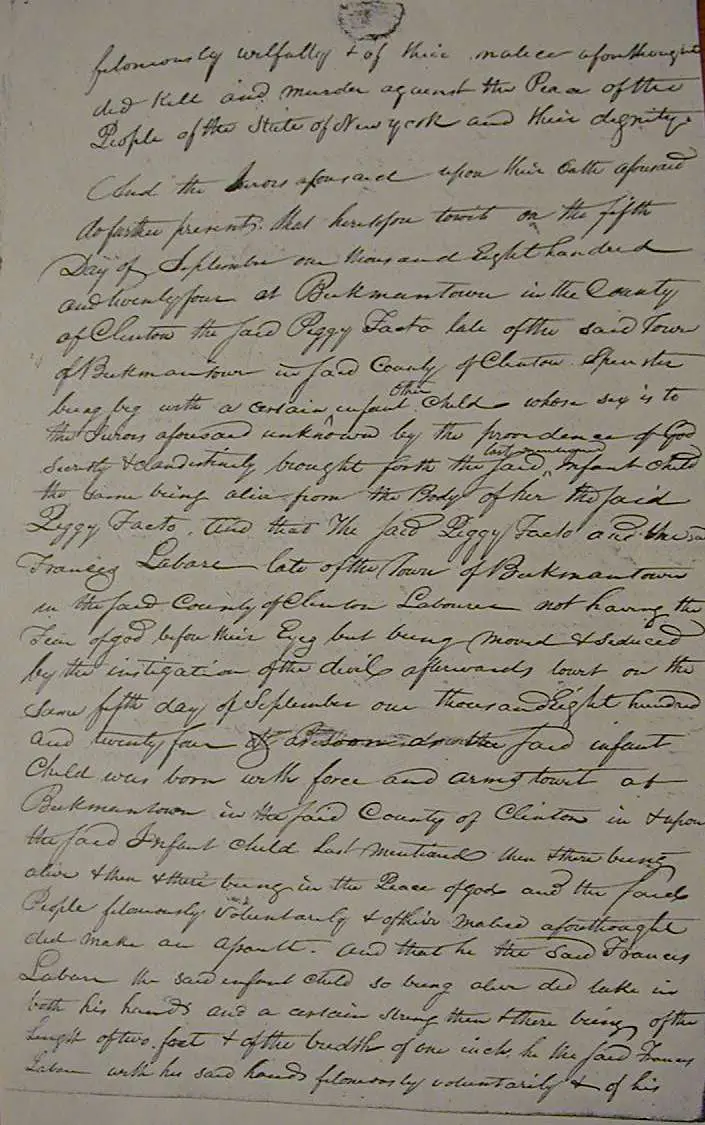 feloniously wilfully & of their malice aforethought
did kill and murder against the Peace of the
People of the State of New york and their dignity.
And the Jurors aforesaid upon their Oath aforesaid
do further present. that heretofore towit on the fifth
Day of September one thousand Eight hundred
and twenty four at Beekmantown in the County
of Clinton the said Peggy Facto late of the said Town
of Beekmantown in said County of Clinton Spinster
being big with a certain infant other Child whose sex is to
the Jurors aforesaid unknown by the providence of God
secretly & clandestinely brought forth the said last mentioned Infant Child
the same being alive from the Body of her the said
Peggy Facto. And that the said Peggy Facto and the
Francis Labare late of the Town of Beekmantown
in the said County of Clinton Labourer not having the
Fear of god before their Eyes but being moved & seduced
by the instigation of the devil afterwards towit on the
same fifth day of September one thousand Eight hundred
and twenty four as soon as the said infant
Child was born with force and arms towit at
Beekmantown in the said County of Clinton in & upon
the said Infant Child last mentioned then & there being
alive & then & there being in the Peace of god and the said
People feloniously voluntarily & of their malice aforethought
did make an assault. And that he the said Francis
Labare the said infant child so being alive did take in
both his hands and a certain string then & there being of the
length of two feet & of the breadth of one inch he the said Francis
Labare with his said hands feloniously voluntarily & of his